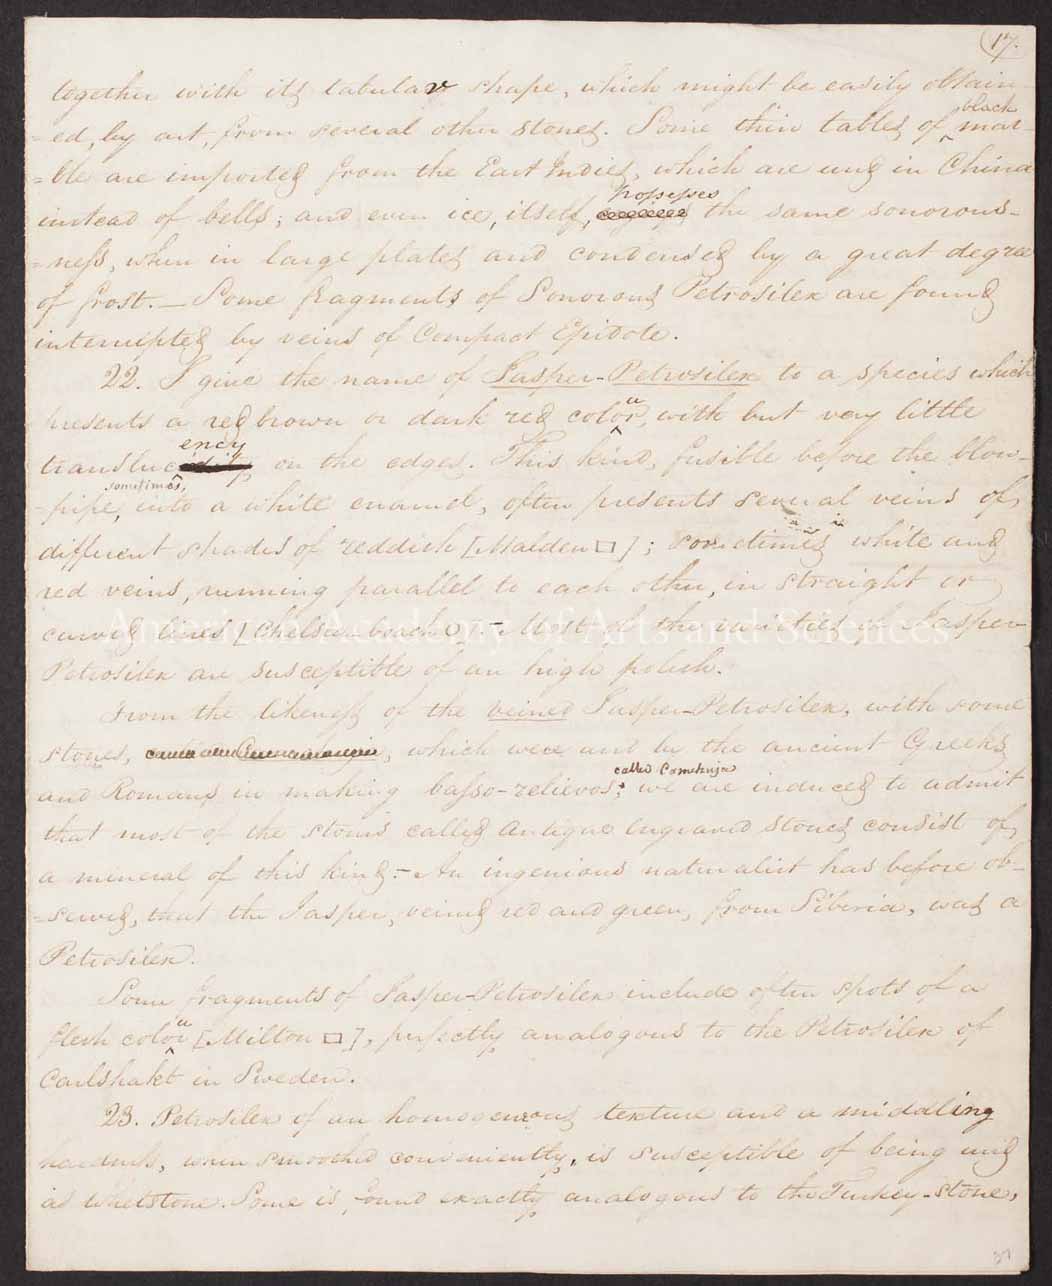 17.
together with its tabular shape, which might be easily obtain-
black
=ed, by art, from several other stones. Some thin tables of ^ mar-
=ble are imported from the East Indies, which are used in China
possesses
instead of bells; and even ice, itself, the same sonorous-
=ness, when in large plates and condensed by a great degree
of frost. — Some fragments of Sonorous Petrosilex are found
interrupted by veins of Compact Epidote.
22. I give the name of Jasper-Petrosilex to a species which
presents a red brown or dark red colour, with but very little
ency
transluc on the edges. This kind, fusible before the blow-
sometimes,
-pipe, into a white enamel, often presents several veins of
different shades of reddish [Malden □]; sometimes white and
red veins, running parallel to each other, in straight or
curved lines [Chelsea-beach O]. - Most of the varieties of Jasper-
Petrosilex are susceptible of an high polish.
From the likeness of the veined Jasper-Petrosilex, with some
stones, which were used by the ancient Greeks
called Camehuja
and Romans in making basso-relievos; we are induced to admit
that most of the stones called antique engraved stones consist of
a mineral of this kind. - An ingenious naturalist has before ob-
=served, that the Jasper, veined red and green, from Siberia, was a
Petrosilex.
Some fragments of Jasper-Petrosilex include often spots of a
flesh colour [Milton □], perfectly analogous to the Petrosilex of
Carlshakt in Sweden.
23. Petrosilex of an homogeneous texture and a middling
hardness, when smoothed conveniently, is susceptible of being used
as whetstone. Some is found exactly analogous to the Turkey-stone,
American Academy of Arts and Sciences